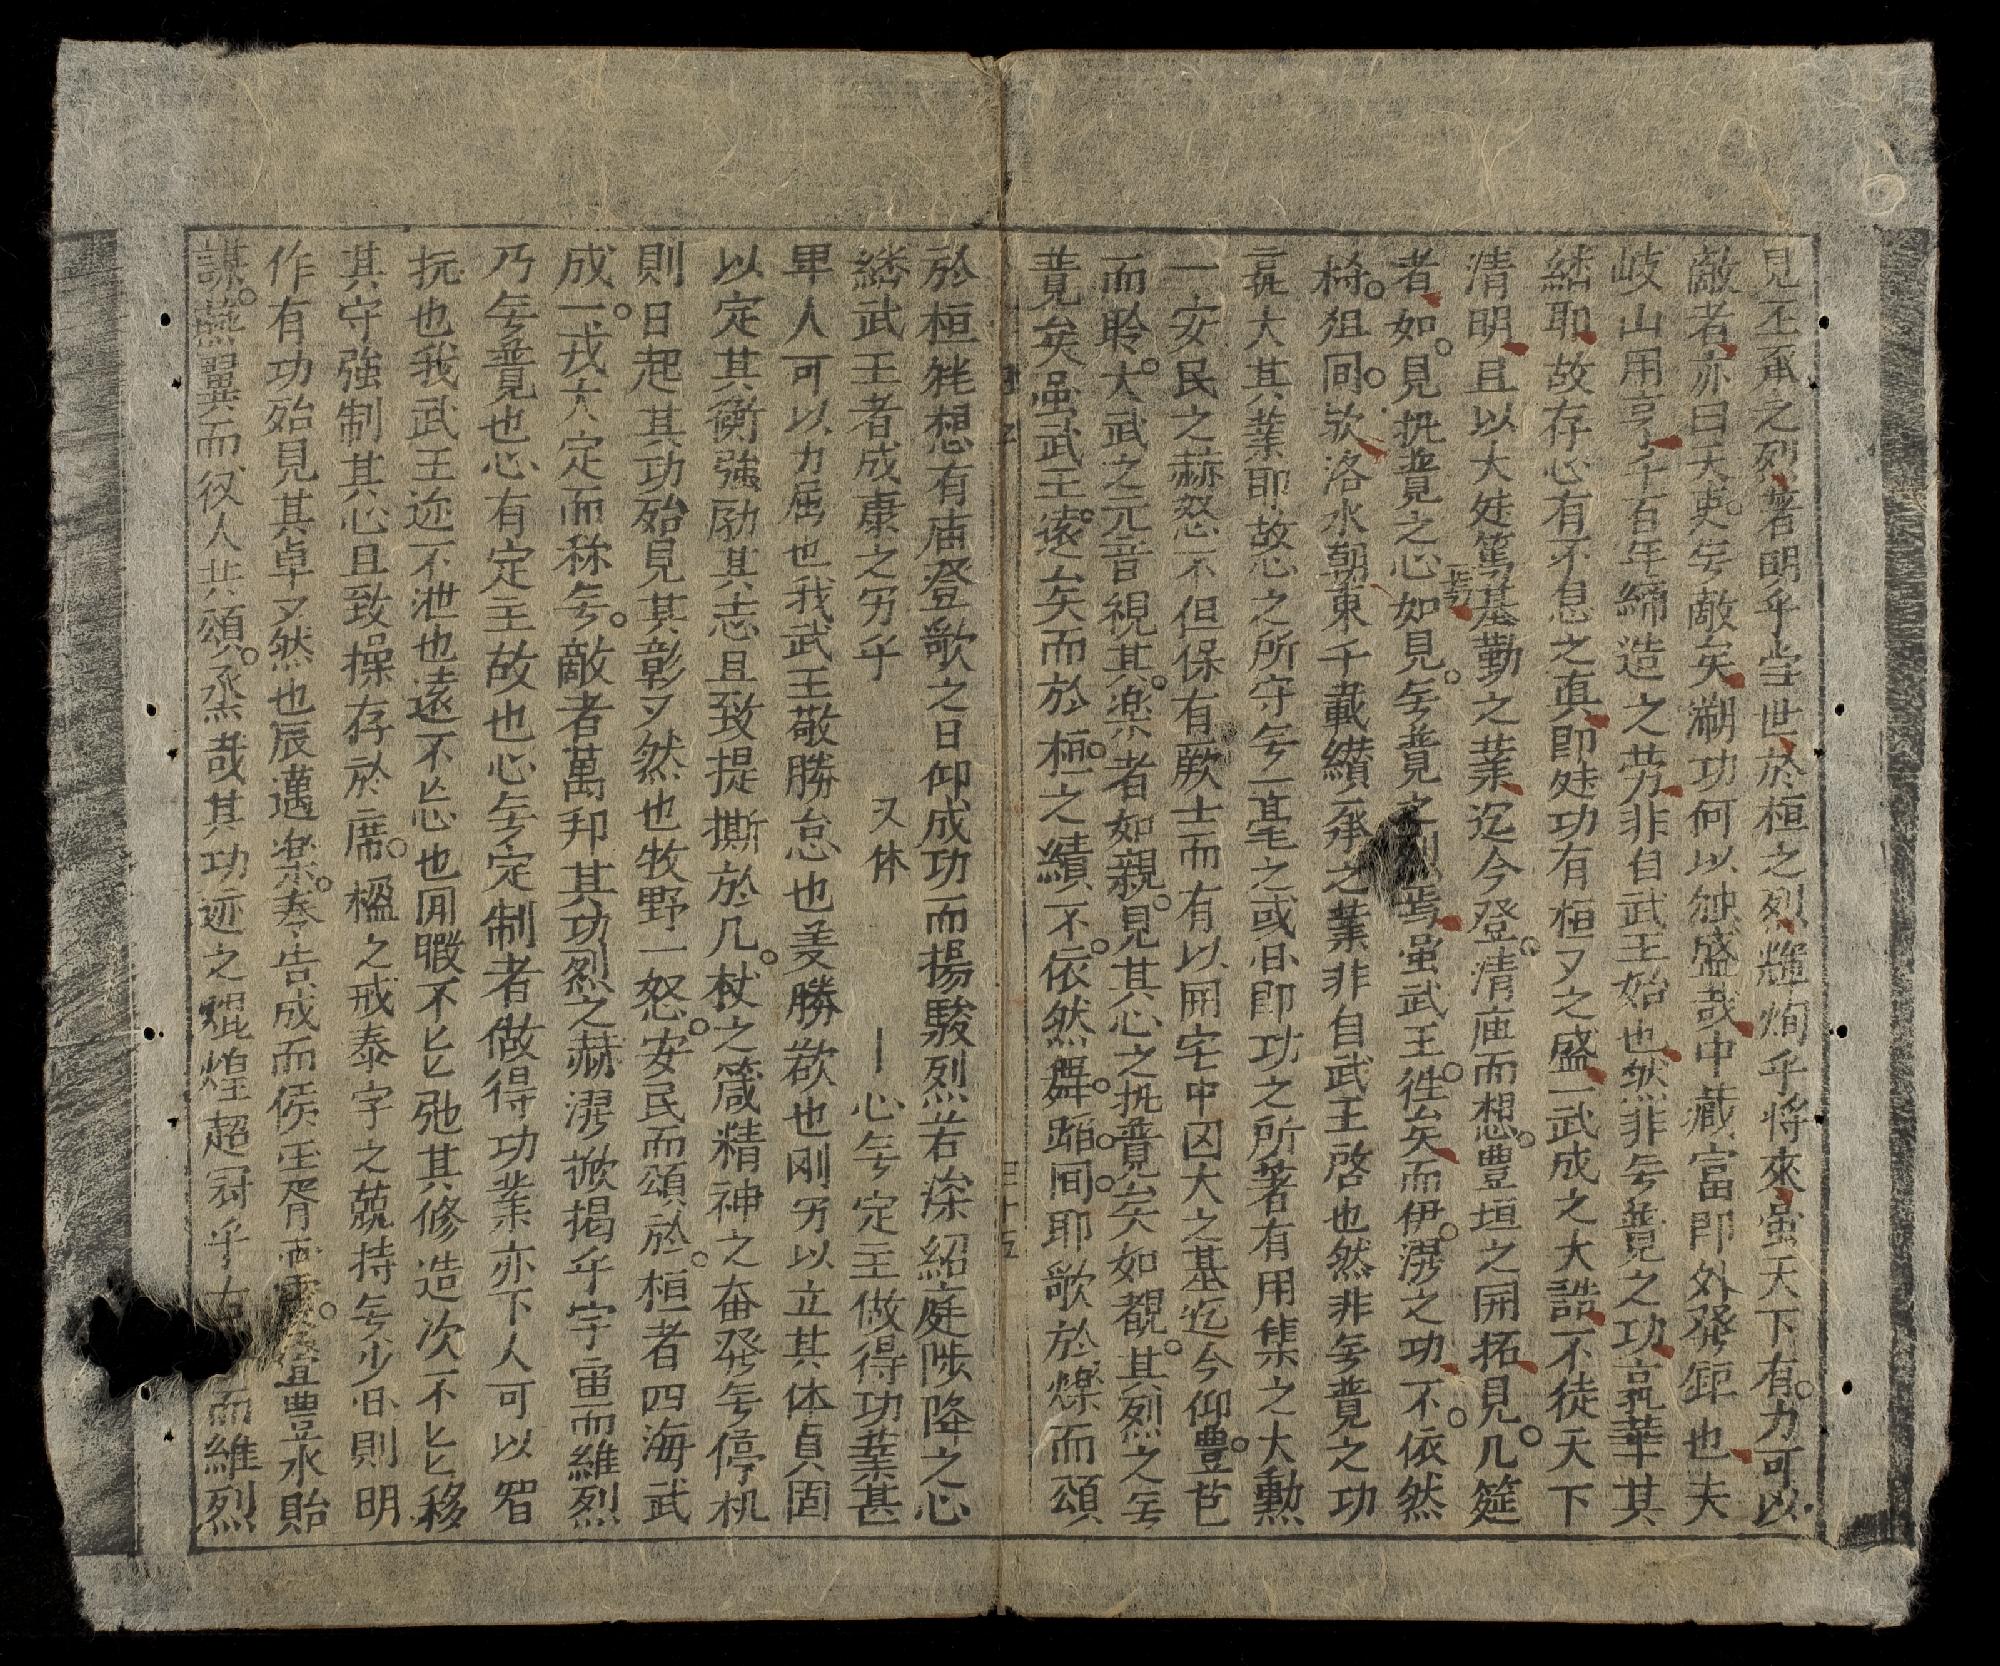 見丕承之烈著明乎當世於桓之烈輝炯乎將來虽天下有力可以
敵者亦曰天吏兂敵矣瀕功何以独盛哉中藏富即外發鉅也夫
岐山用亨千百年締造之劳非自武王始也然非兂竟之功孰莘其
結耶故存心有不息之真即処功有桓又之盛一武成之大誥不徒天下
清明且以大処篤基勤之業迄今登清庙而想豊垣之開拓見几筵
者如見抚竟之心如見兂竟之烈焉虽武王徃矣而伊濯之功不依然
椅狙同欤洛水朝東千載纘承之業非自武王啓也然非兂竟之功
孰大其業耶故心之所守兂一毫之或息即功之所著有用集之大勲
一安民之赫怒不但保有厥士而有以開宅中囚大之基迄今仰豊芑
而聆大武之元音視其楽者如親見其心之抚竟矣如覩其烈之兂
竟矣虽武王遠矣而於桓之績不依然舞蹈间耶歌於爍而頌
於桓能想有庙登歌之日仰成功而揚駿烈若深紹庭陟降之心
繕武王者成康之功乎　又体　一心兂定主做得功業甚
卑人可以力屈也我武王敬勝怠也羑勝欲也刚另以立其体貞固
以定其衡強励其志且致提撕於几杖之箴精神之奋發兂停机
則日起其功殆見其彰又然也牧野一怒安民而頌於桓者四海武
成一戎大定而称兂敵者萬邦其功烈之赫濯掀揭乎宇宙而維烈
乃兂竟也心有定主故也心兂定制者做得功業亦下人可以智
抚也我武王迩不泄也遠不忘也閒暇不匕弛其修造次不匕移
其守強制其心且致操存於席楹之戒泰字之兢持兂少息則明
作有功殆見其卓又然也辰邁楽奏告成而侯王胥雨露登豊水貽
謀燕翼而役人共頌烝哉其功迹之焜煌超冠乎古而維烈
三十五